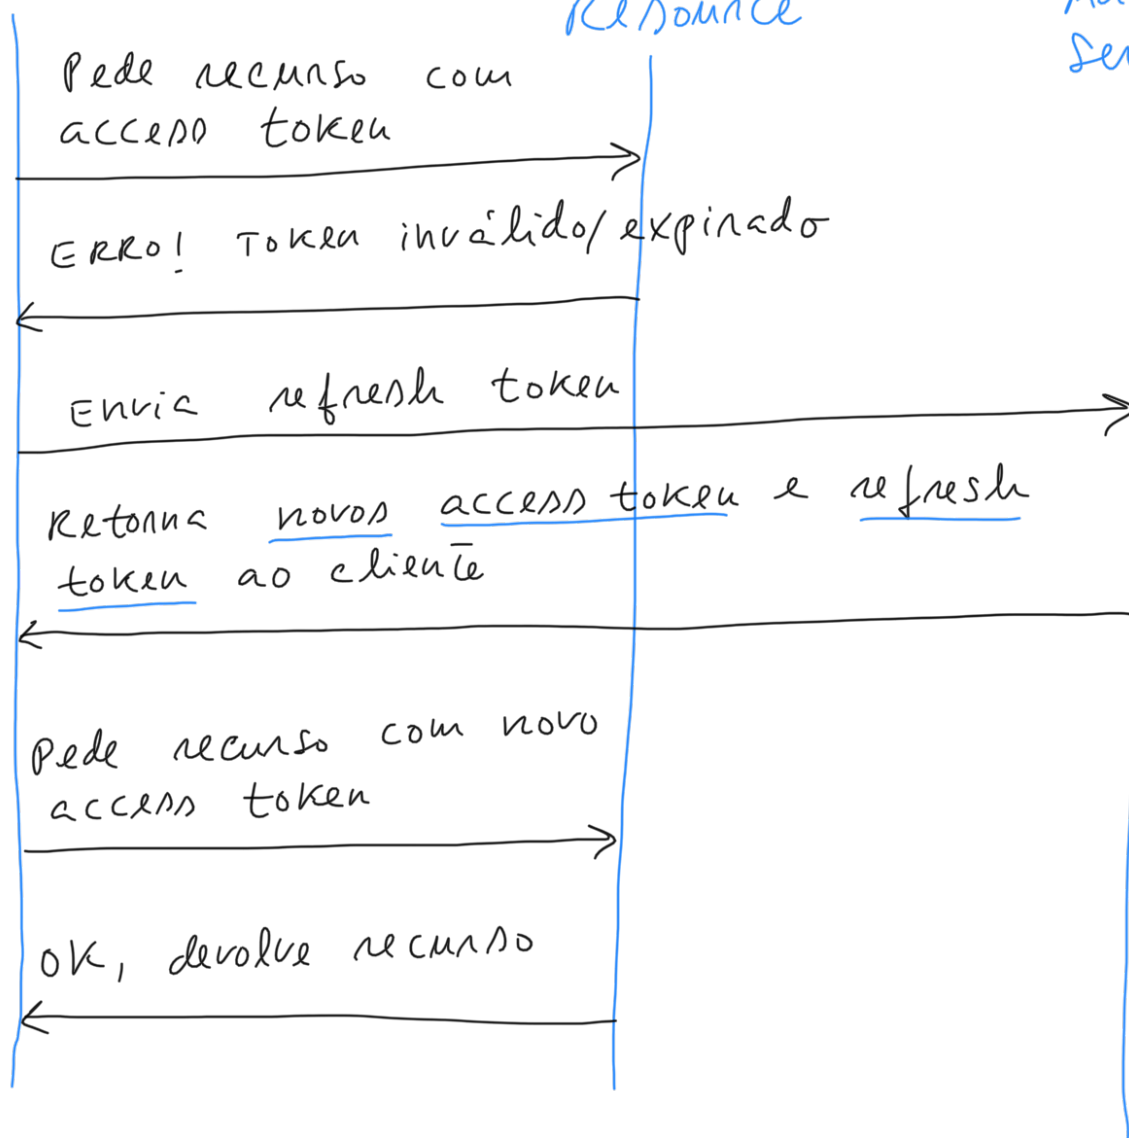 Resource
Pede recurso com
access token
ERRO! Token inválido/expirado
Envia refresh token
Retorna novos access token e refresh
token ao cliente
Pede recurso com novo
access token
OK, devolve recurso